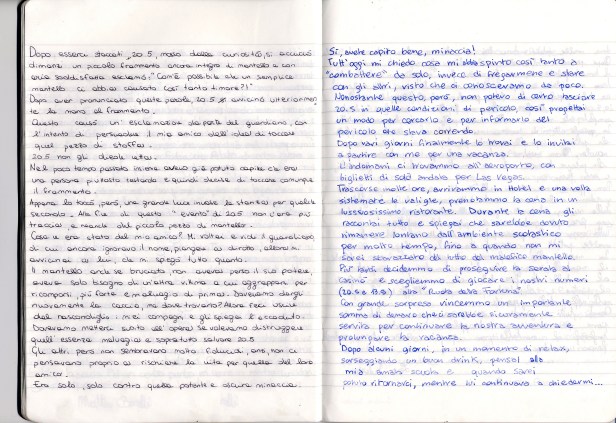 Dopo essersi staccati, 20.5, mosso dalla curiosità, si accucciò
dinanzi un piccolo frammento ancora integro di mantello e con
aria soddisfatta esclamò: "Com'è possibile che un semplice
mantello ci abbia causato così tanto male?!"
Dopo aver pronunciato queste parole, 20.5 si avvicinò ulteriormen-
te la mano al frammento.
Questo causò un'esclamazione da parte del guardiano, con
l'intento di persuadere il mio amico dall'idea di toccare
quel pezzo di stoffa.
20.5 non gli diede retta.
Nel poco tempo passato insieme avevo già potuto capire che era
una persona piuttosto testarda e quindi decise di toccare comunque
il frammento.
Appena lo toccò, però, una grande luce invase la stanza per qualche
secondo. Alla fine di questo "evento" di 20.5 non c'era più
traccia, e neanche del piccolo pezzo di mantello.
Cosa ne era stato del mio amico? Mi voltai e vidi il guardiano,
di cui ancora ignoravo il nome, piangere a dirotto, allora mi
avvicinai a lui, che mi spiegò tutto quanto.
Il mantello, anche se bruciato, non aveva perso il suo potere,
aveva solo bisogno di un'altra vittima a cui aggrapparsi per
ricomporsi, più forte e malvagio di prima. Dovevamo dargli
nuovamente la caccia, ma dove trovarlo? Allora feci uscire
dal nascondiglio i miei compagni e gli spiegai l'accaduto.
Dovevamo metterci subito all'opera! Se volevamo distruggere
quell'essenza malvagia e soprattutto salvare 20.5
Gli altri, però, non sembravano molto fiduciosi, anzi, non ci
pensavano proprio a rischiare la vita per quella del loro
amico.
Ero solo, solo contro quella potente e oscura minaccia.
Sì, avete capito bene, minaccia!
Tutt'oggi mi chiedo cosa mi abbia spinto così tanto a
"combattere" da solo, invece di fregarmene e stare
con gli altri, visto che ci conoscevamo da poco.
Nonostante questo, però, non potevo di certo lasciare
20.5 in quelle condizioni di pericolo, così progettai
un modo per cercarlo e per informarlo del
pericolo che stava correndo.
Dopo vari giorni finalmente lo trovai e lo invitai
a partire con me per una vacanza.
L'indomani ci trovammo all'aeroporto, con
biglietti di sola andata per Las Vegas.
Trascorse molte ore, arrivammo in Hotel e una volta
sistemate le valigie, prenotammo la cena in un
lussuosissimo ristorante. Durante la cena gli
raccontai tutto e spiegai che sarebbe dovuto
rimanere lontano dall'ambiente scolastico
per molto tempo, fino a quando non mi
sarei sbarazzato del tutto del malefico mantello.
Più tardi decidemmo di proseguire la serata al
casinò e scegliemmo di giocare i nostri numeri
(20.5 e 13.9) alla "Ruota della fortuna"
Con grande sorpresa vincemmo un importante
somma di denaro che ci sarebbe sicuramente
servita per continuare la nostra avventura e
prolungare la vacanza.
Dopo alcuni giorni, in un momento di relax,
sorseggiando un buon drink, pensai alla
mia amata scuola e quando sarei
potuto ritornarci, mentre lui continuava a chiedermi...